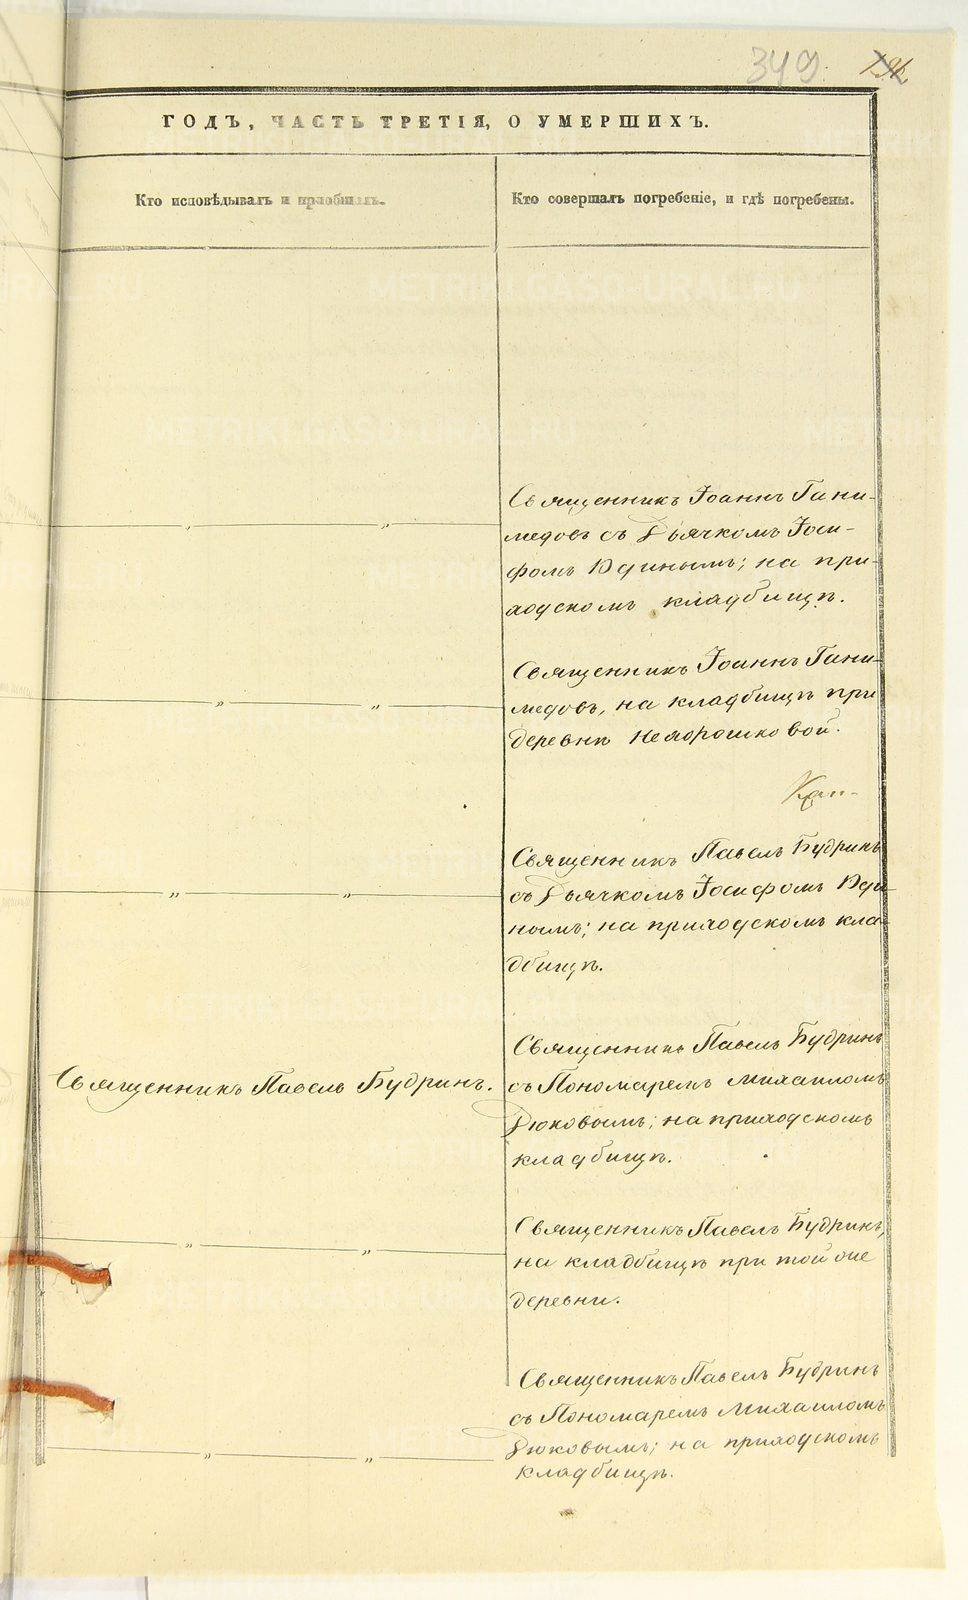 349.
ГОДЪ, ЧАСТЬ ТРЕТІЯ, О УМЕРШИХЪ.
Кто исповѣдывалъ и пріобщалъ.
Кто совершалъ погребеніе, и гдѣ погребены.
Священникъ Іоаннъ Гани-
медовъ съ Дьячкомъ Іоси-
фомъ Юдинымъ; на при-
ходскомъ кладбищѣ.
Священникъ Іоаннъ Гани-
медовъ, на кладбищѣ при
деревнѣ Нехорошковой.
Священникъ Павелъ Будринъ
съ Дьячкомъ Іосифомъ Юди-
нымъ; на приходскомъ кла-
дбищѣ.
Священникъ Павелъ Будринъ.
Священникъ Павелъ Будринъ
съ Пономаремъ Михаиломъ
Дюковымъ; на приходскомъ
кладбищѣ.
Священникъ Павелъ Будринъ,
на кладбищѣ при той же
деревни.
Священникъ Павелъ Будринъ
съ Пономаремъ Михаиломъ
Дюковымъ; на приходскомъ
кладбищѣ.
METRIKI.GASO-URAL.RU